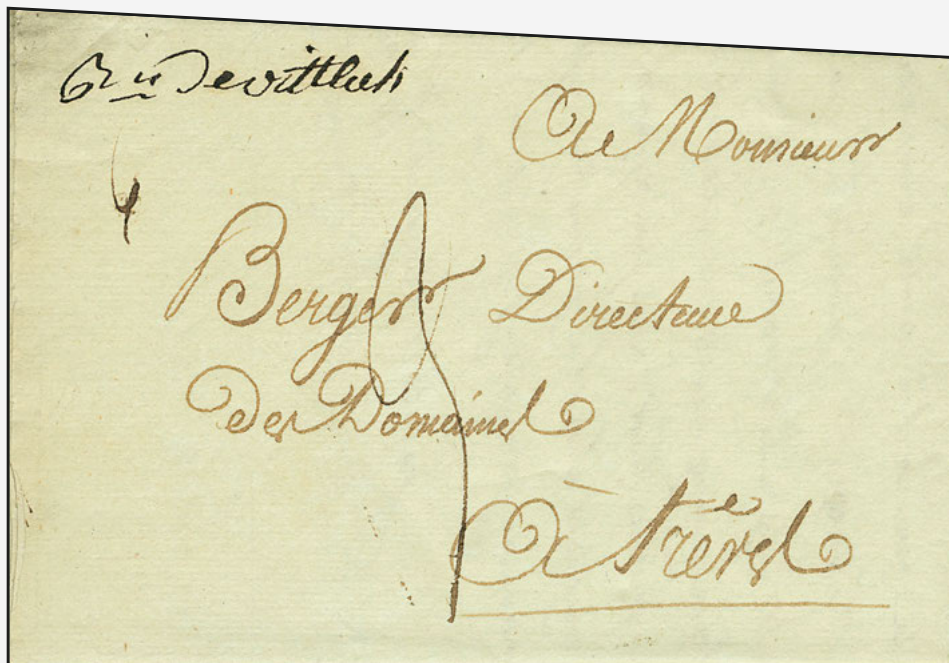 Bau De Wittlich
A Monsieur
4
Berger Directeur
des Domaines
à trèves